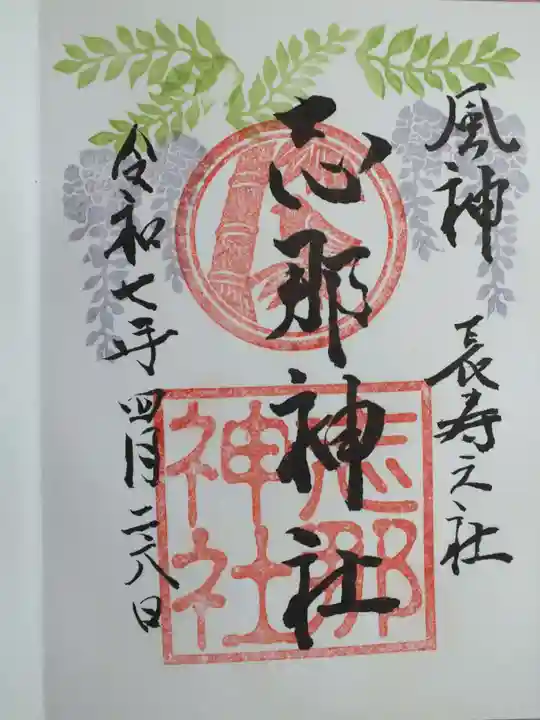 風神 長寿之社
志那神社
志那
神社
令和七年四月二十八日